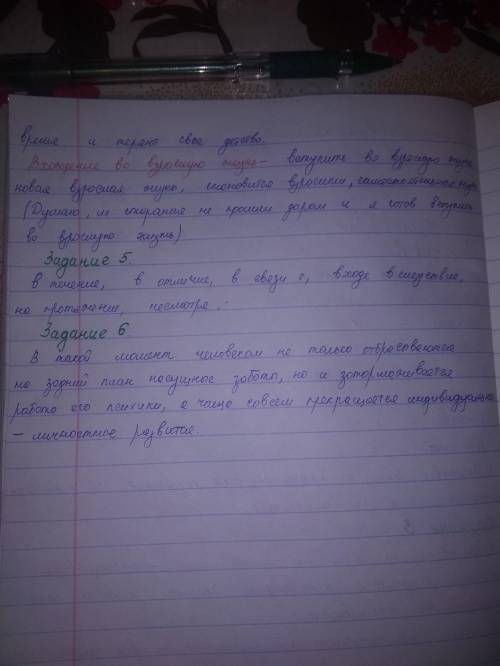 время и теряют свое детство.
Вхождение во взрослую жизнь - вступить во взрослую
новая взрослая становится взрослым,
(Думаю, старания не прошли даром и я готов вступить
во взрослую жизнь)
Задание 5.
В течение, в отличие, в связи с, входе вследствие,
на протяжении, несмотря.
Задание 6.
В такой момент человеком не только отбрасываются
на задний план насущное заботы, но и затормаживается
работа его психики, а чаще совсем прекращается индивидуально
- личностное развитие.